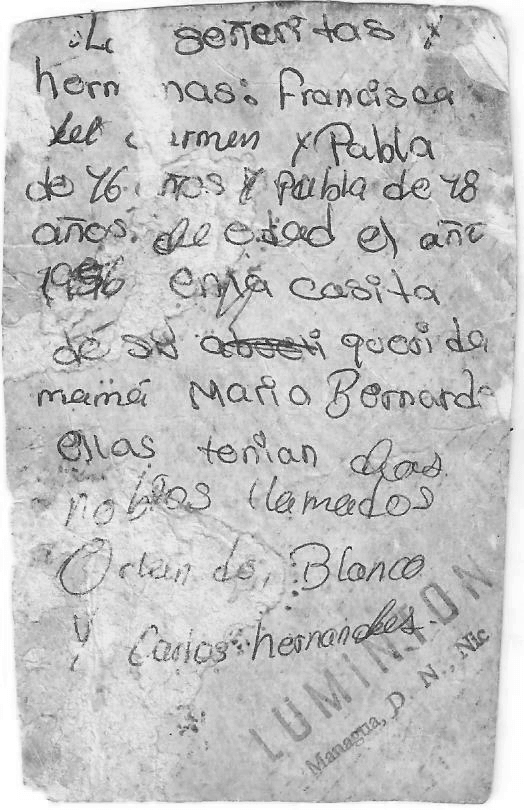 señeritas y
hermanas: francisca
del carmen y Pabla
de 16 años y pabla de 18
años. de edad el año
1956 en la casita
de su querida
mamá Maria Bernarda
ellas tenian dos
nobios llamados
Orlando, Blanco
y Carlos hernandes.
LUMINTON
Managua, D. N., Nic